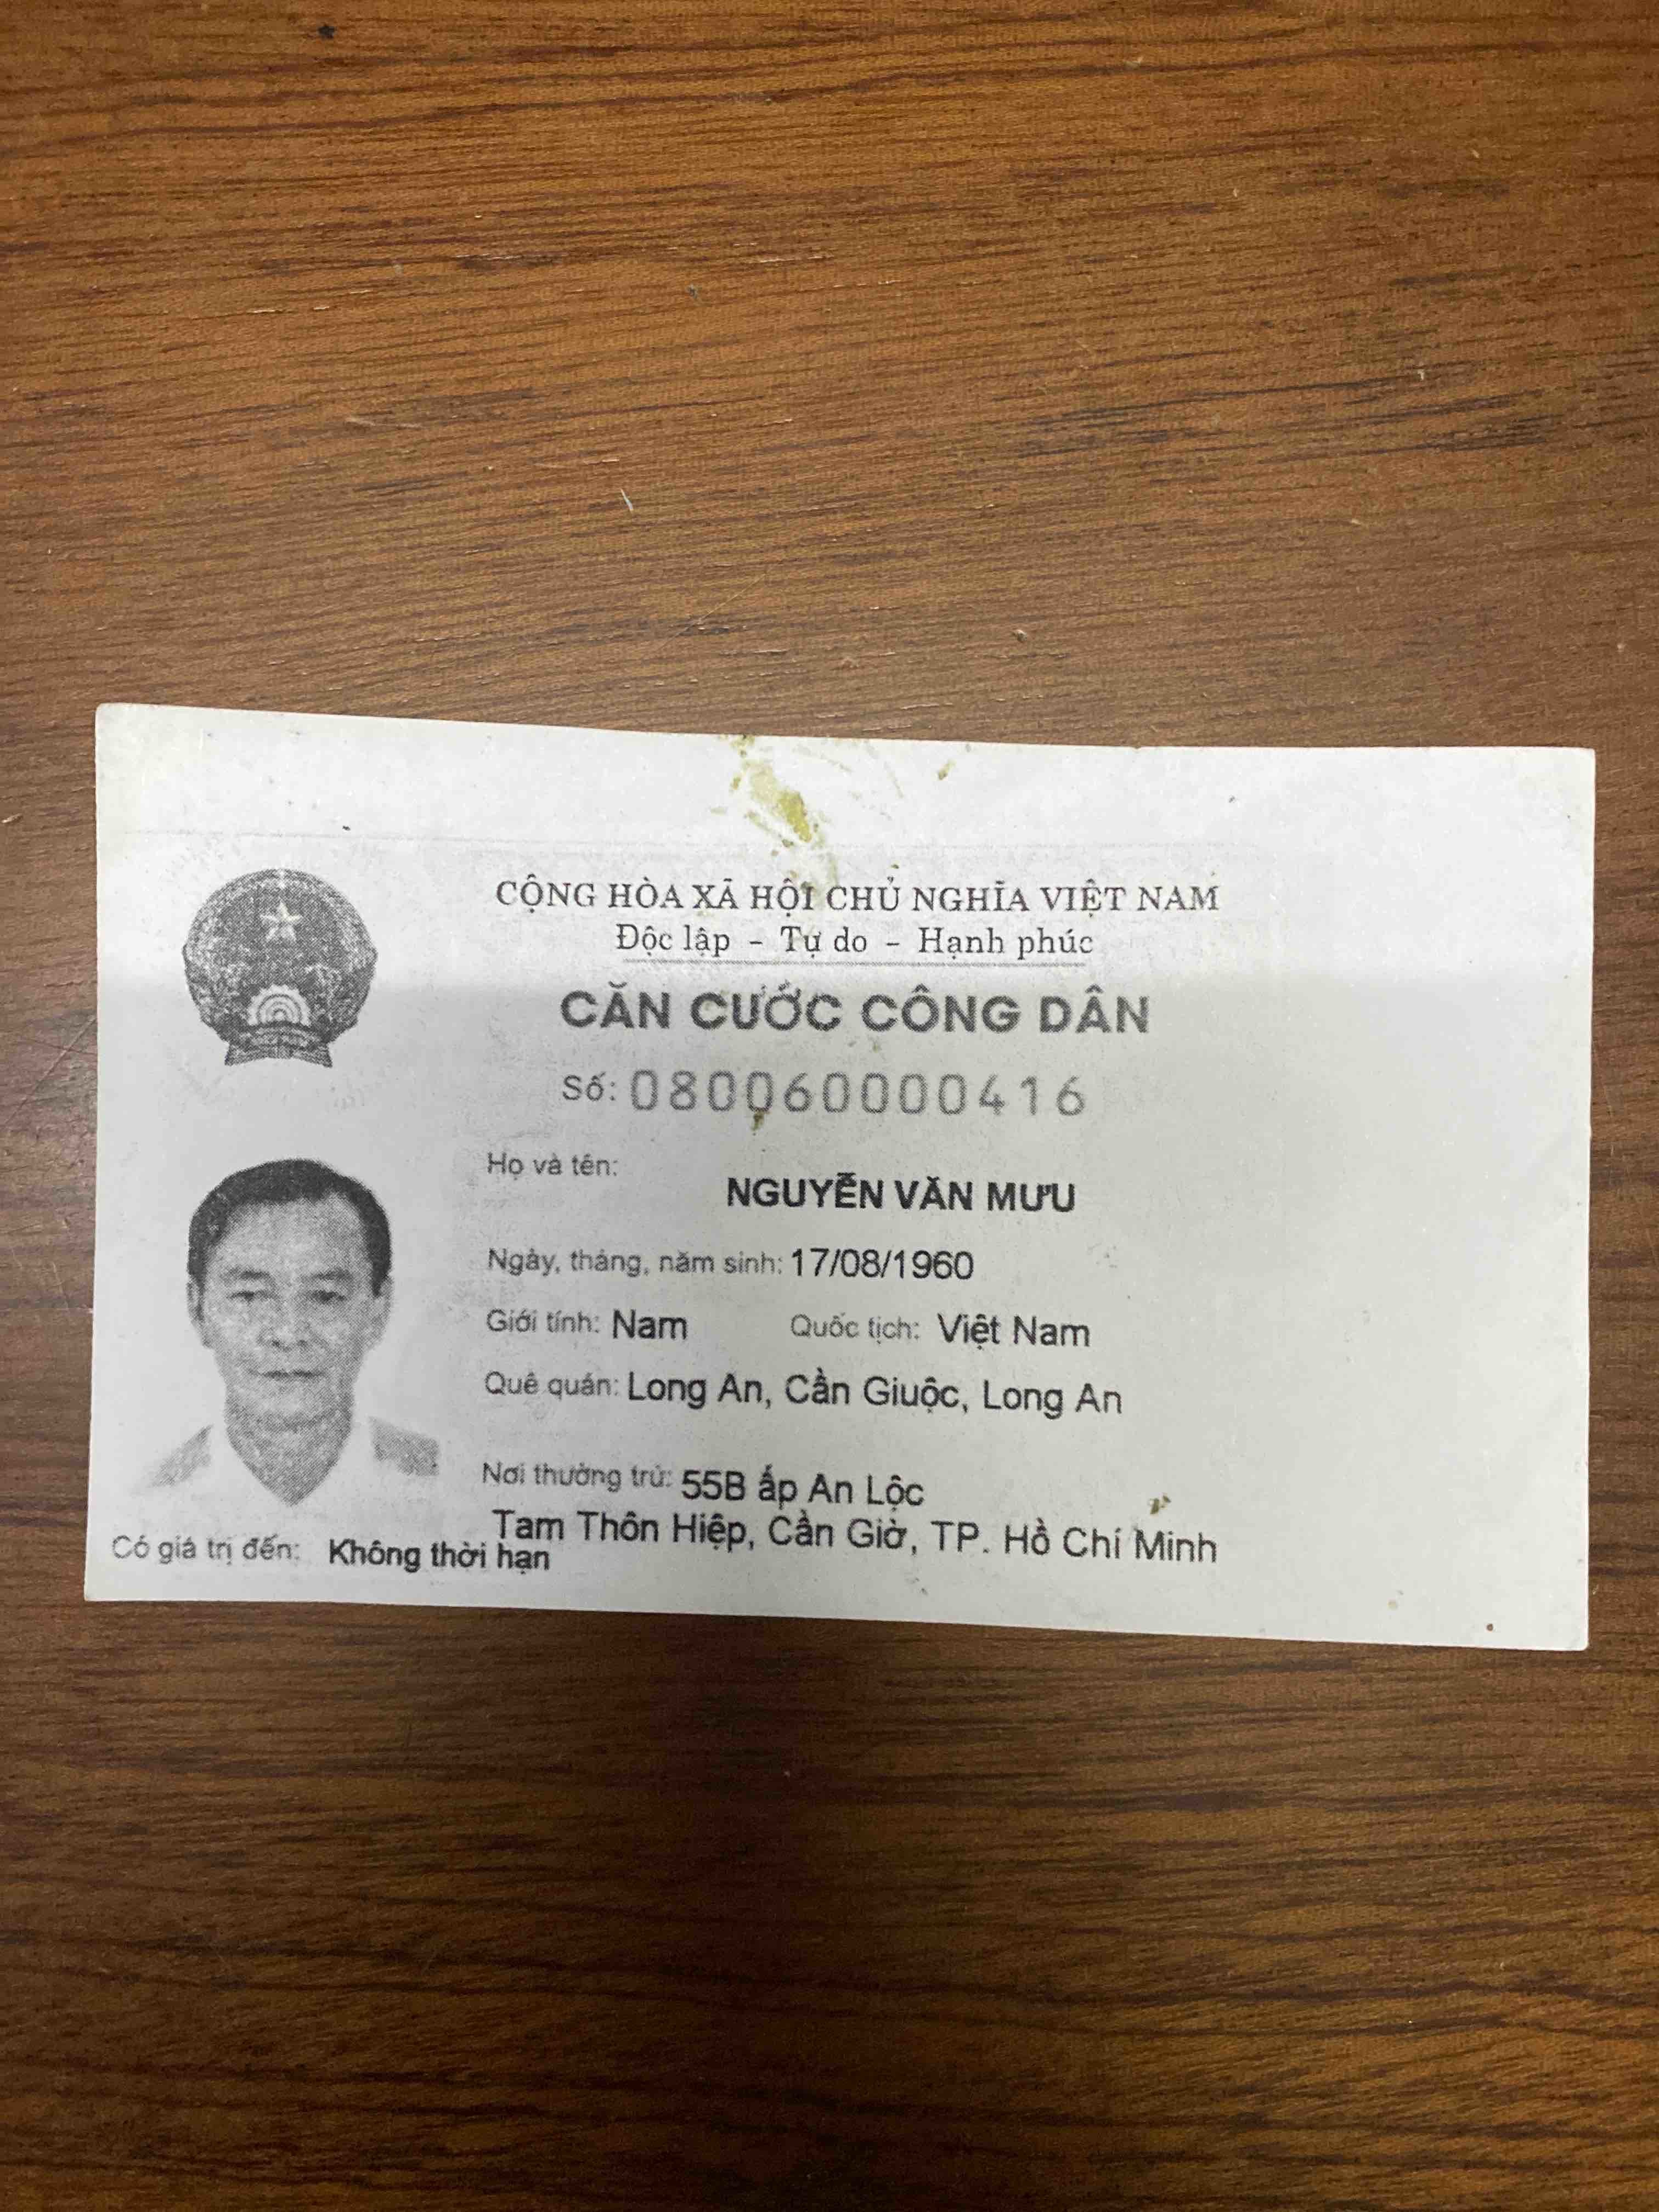 CỘNG HÒA XÃ HỘI CHỦ NGHĨA VIỆT NAM
Độc lập - Tự do - Hạnh phúc
CĂN CƯỚC CÔNG DÂN
Số: 080060000416
Họ và tên:
NGUYỄN VĂN MƯU
Ngày, tháng, năm sinh: 17/08/1960
Giới tính: Nam Quốc tịch: Việt Nam
Quê quán: Long An, Cần Giuộc, Long An
Nơi thường trú: 55B ấp An Lộc
Tam Thôn Hiệp, Cần Giờ, TP. Hồ Chí Minh
Có giá trị đến: Không thời hạn